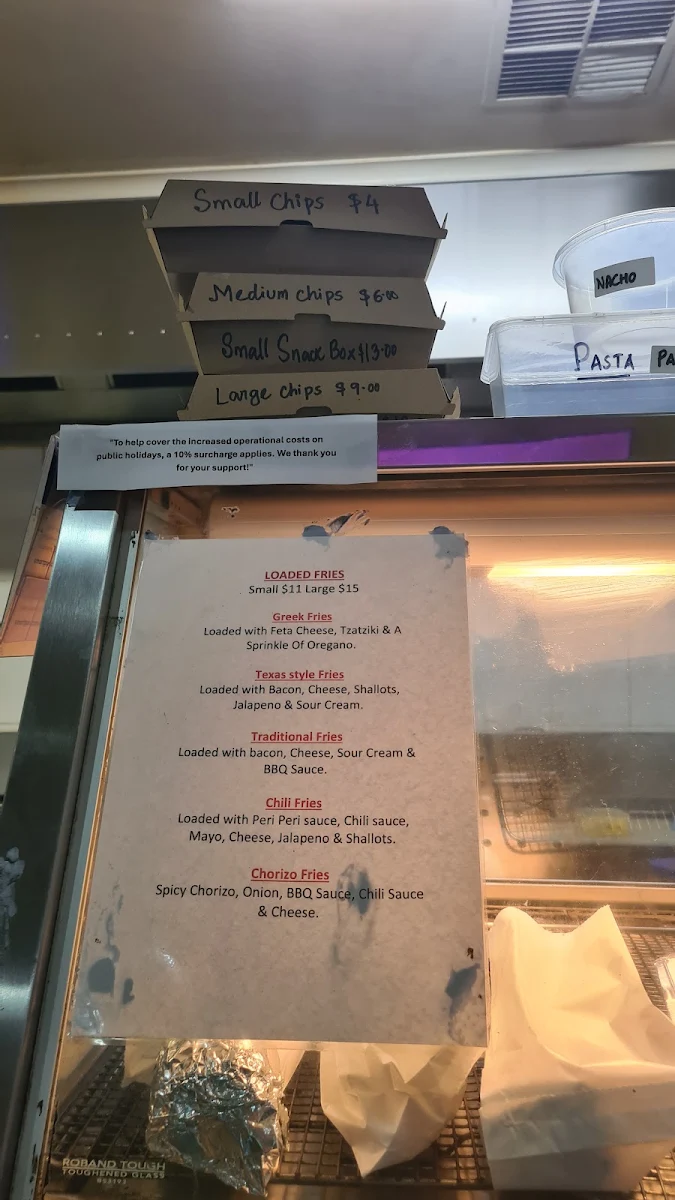 Small Chips $4
Medium chips $6.00
Small Snack Box $13.00
Large chips $9.00
NACHO
PASTA
"To help cover the increased operational costs on
public holidays, a 10% surcharge applies. We thank you
for your support!"
LOADED FRIES
Small $11 Large $15
Greek Fries
Loaded with Feta Cheese, Tzatziki & A
Sprinkle Of Oregano.
Texas style Fries
Loaded with Bacon, Cheese, Shallots,
Jalapeno & Sour Cream.
Traditional Fries
Loaded with bacon, Cheese, Sour Cream &
BBQ Sauce.
Chili Fries
Loaded with Peri Peri sauce, Chili sauce,
Mayo, Cheese, Jalapeno & Shallots.
Chorizo Fries
Spicy Chorizo, Onion, BBQ Sauce, Chili Sauce
& Cheese.
ROBAND TOUGH
TOUGHENED GLASS